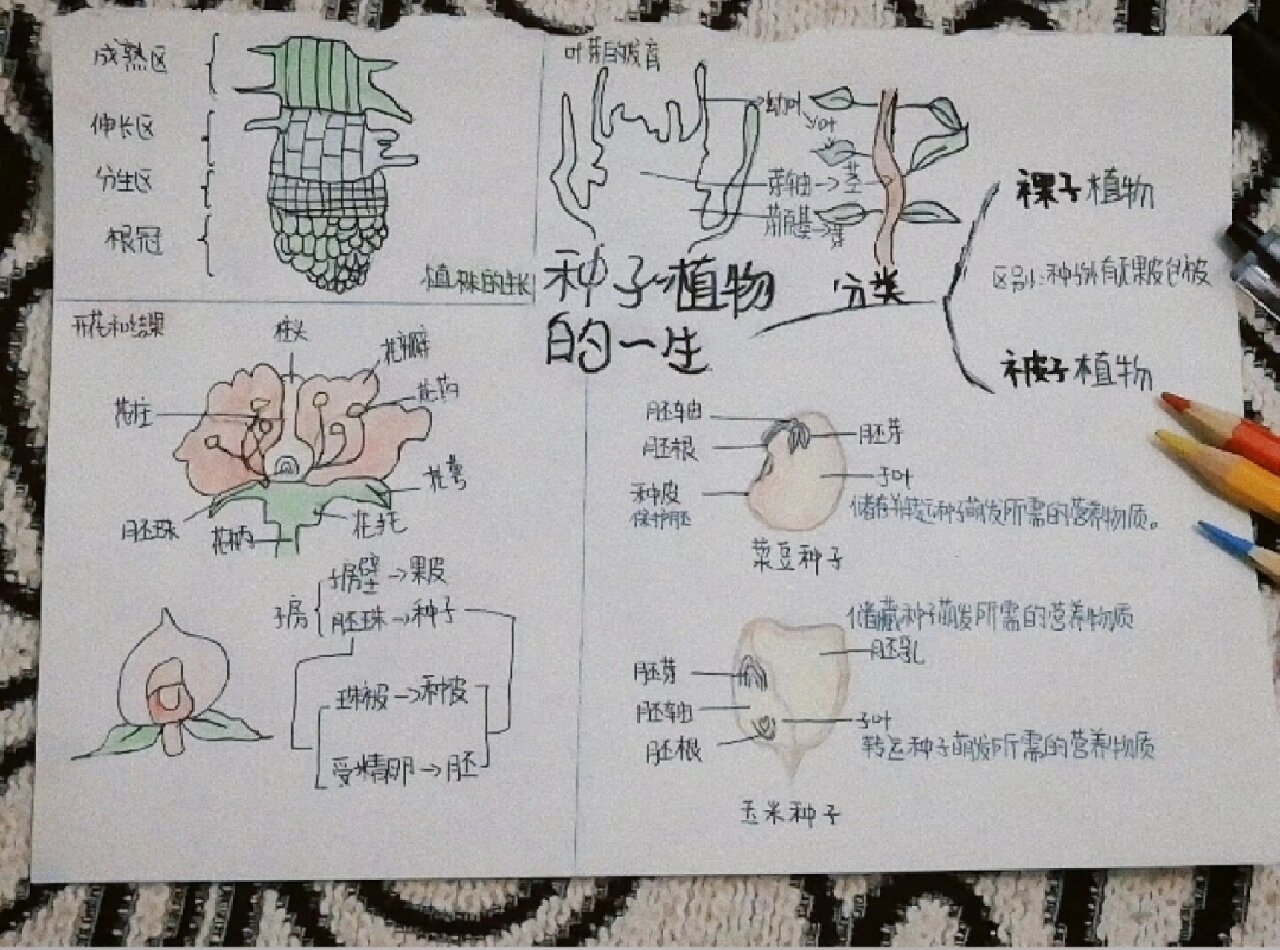 成熟区
伸长区
分生区
根冠
植株的生长
叶芽的发育
幼叶
叶
芽轴→茎
芽原基→芽
种子植物
的一生
分类
裸子植物
区别:种子外有无果皮包被
被子植物
开花和结果
柱头
花瓣
花药
花柱
花萼
胚珠
花柄
花托
子房
子房壁→果皮
胚珠→种子
珠被→种皮
受精卵→胚
胚轴
胚根
胚芽
子叶
种皮
保护胚
储存并转运种子萌发所需的营养物质。
菜豆种子
储藏种子萌发所需的营养物质
胚乳
胚芽
胚轴
胚根
子叶
转运种子萌发所需的营养物质
玉米种子